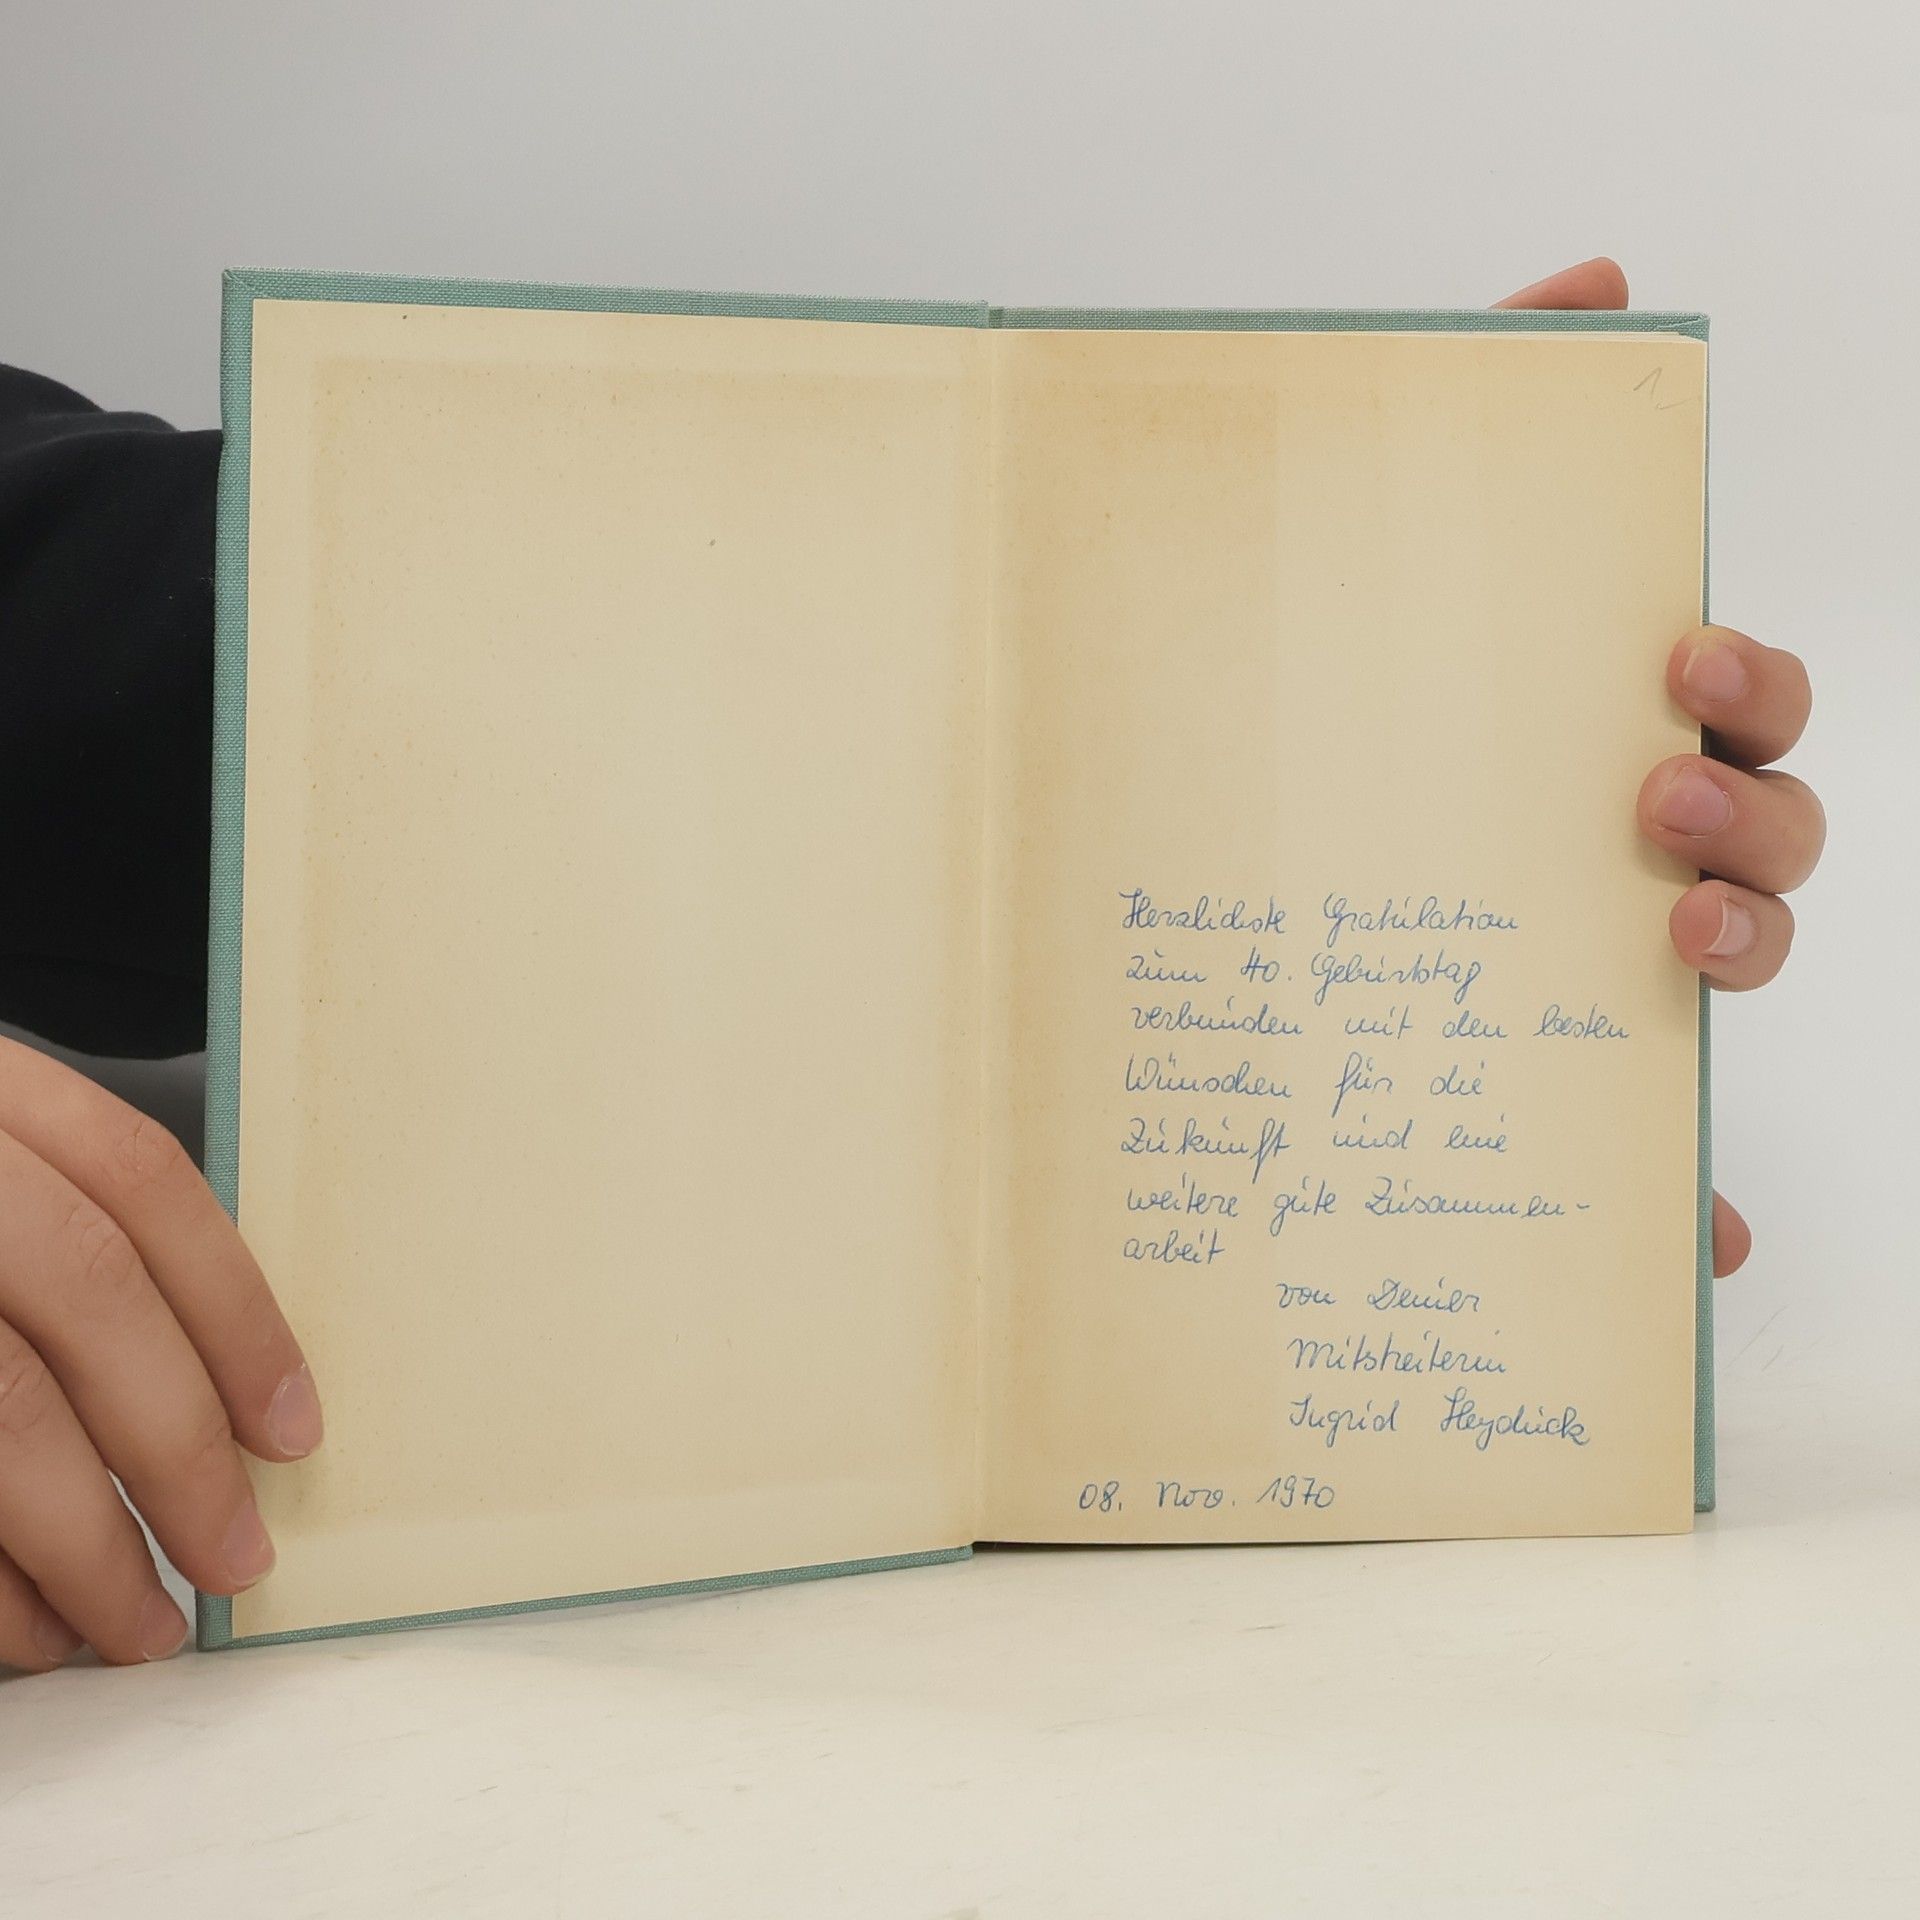 1
Herzlichste Gratulation
zum 40. Geburtstag
verbunden mit den besten
Wünschen für die
Zukunft und eine
weitere gute Zusammen-
arbeit
von Deiner
Mitstreiterin
Ingrid Heyduck
08. Nov. 1970